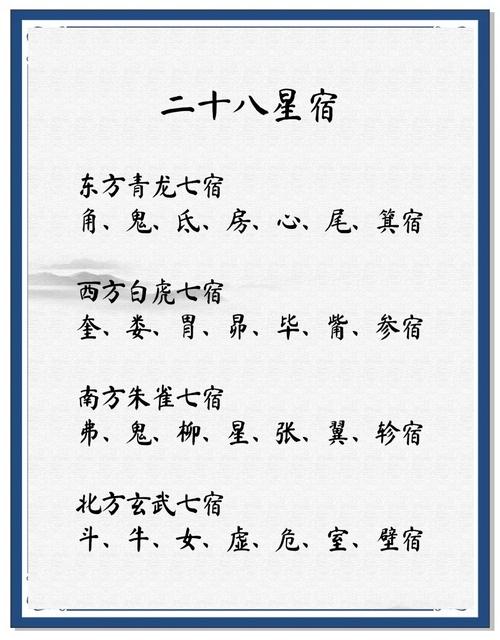 二十八星宿
东方青龙七宿
角、鬼、氐、房、心、尾、箕宿
西方白虎七宿
奎、娄、胃、昴、毕、觜、参宿
南方朱雀七宿
弗、鬼、柳、星、张、翼、轸宿
北方玄武七宿
斗、牛、女、虚、危、室、壁宿